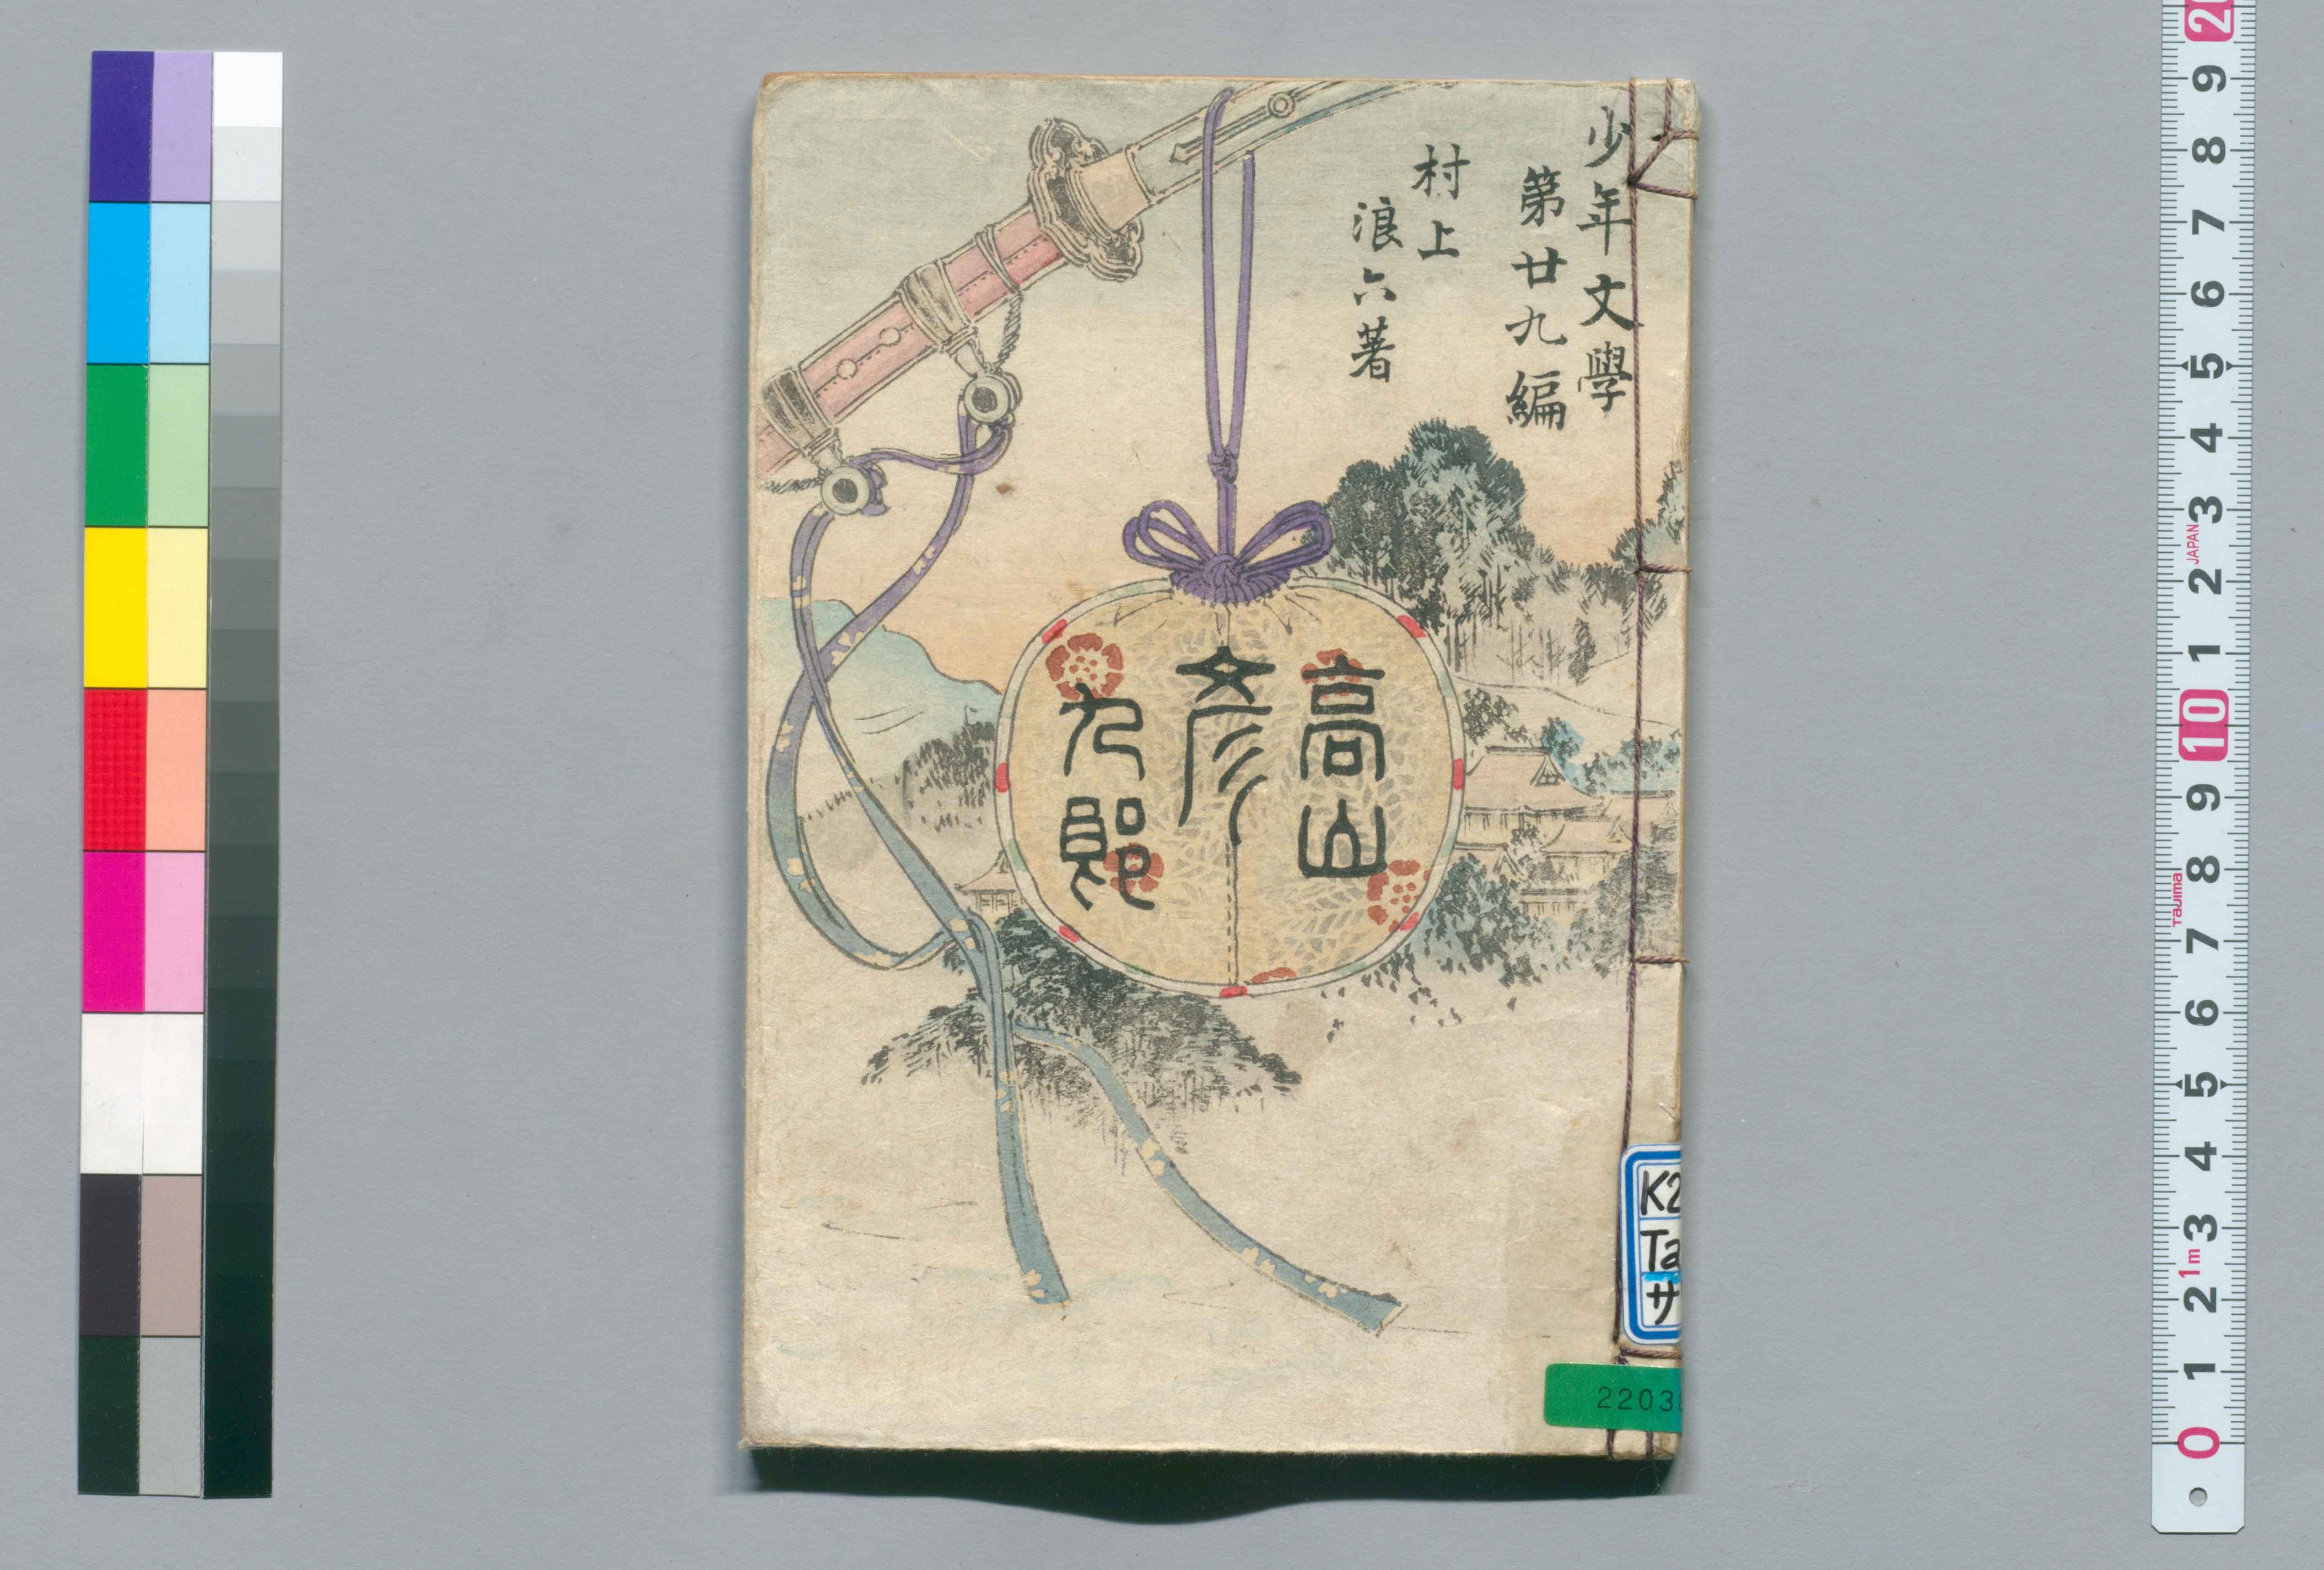 少年文學
第廿九編
村上
浪六著
高山
彦
九郎
K2
Ta
サ
2203
20
9
8
7
6
5
4
3
JAPAN
2
1
10
9
8
Tajima
7
6
5
4
3
1m
2
1
0